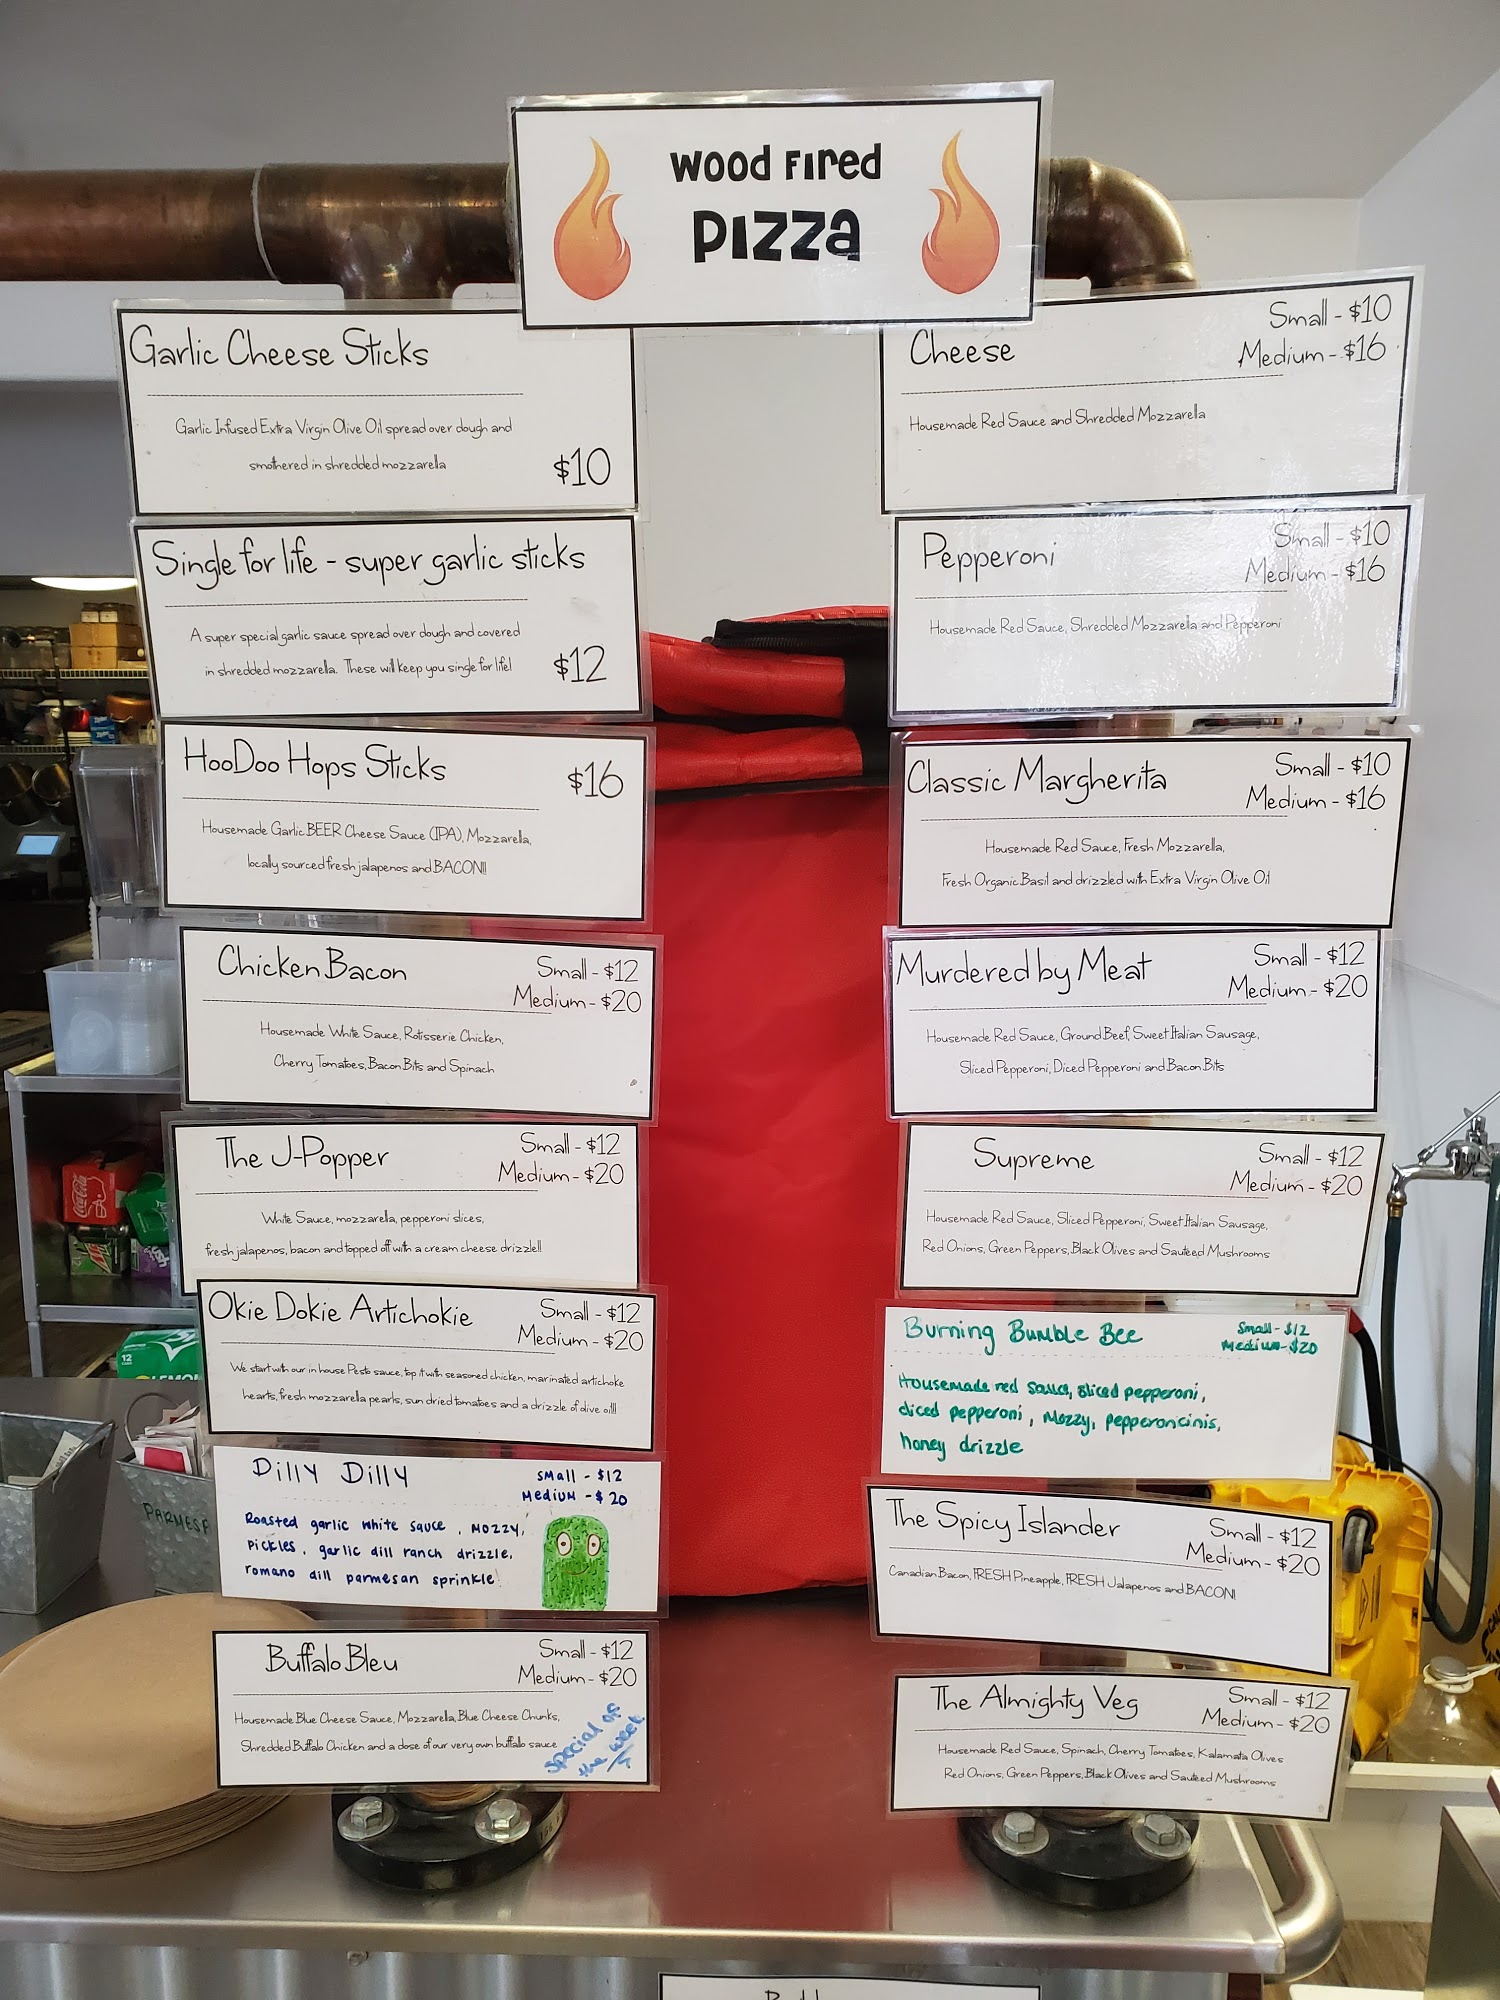 wood fired
pizza
Garlic Cheese Sticks
Garlic Infused Extra Virgin Olive Oil spread over dough and
smothered in shredded mozzarella
$10
Single for life - super garlic sticks
A super special garlic sauce spread over dough and covered
in shredded mozzarella. These will keep you single for life!
$12
HooDoo Hops Sticks
$16
Housemade Garlic BEER Cheese Sauce (IPA), Mozzarella,
locally sourced fresh jalapenos and BACON!!
Chicken Bacon
Small - $12
Medium - $20
Housemade White Sauce, Rotisserie Chicken,
Cherry Tomatoes, Bacon Bits and Spinach
The J-Popper
Small - $12
Medium - $20
White Sauce, mozzarella, pepperoni slices,
fresh jalapenos, bacon and topped off with a cream cheese drizzle!!
Okie Dokie Artichokie
Small - $12
Medium - $20
We start with our in house Pesto sauce, top it with seasoned chicken, marinated artichoke
hearts, fresh mozzarella pearls, sun dried tomatoes and a drizzle of olive oil!!
Dilly Dilly
Small - $12
Medium - $20
Roasted garlic white sauce, Mozzy,
Pickles, garlic dill ranch drizzle,
romano dill parmesan sprinkle!
Buffalo Bleu
Small - $12
Medium - $20
Housemade Blue Cheese Sauce, Mozzarella, Blue Cheese Chunks,
Shredded Buffalo Chicken and a dose of our very own buffalo sauce
special of
the week
Cheese
Small - $10
Medium - $16
Housemade Red Sauce and Shredded Mozzarella
Pepperoni
Small - $10
Medium - $16
Housemade Red Sauce, Shredded Mozzarella and Pepperoni
Classic Margherita
Small - $10
Medium - $16
Housemade Red Sauce, Fresh Mozzarella,
Fresh Organic Basil and drizzled with Extra Virgin Olive Oil
Murdered by Meat
Small - $12
Medium - $20
Housemade Red Sauce, Ground Beef, Sweet Italian Sausage,
Sliced Pepperoni, Diced Pepperoni and Bacon Bits
Supreme
Small - $12
Medium - $20
Housemade Red Sauce, Sliced Pepperoni, Sweet Italian Sausage,
Red Onions, Green Peppers, Black Olives and Sauteed Mushrooms
Burning Bumble Bee
Small - $12
Medium - $20
Housemade red sauce, sliced pepperoni,
diced pepperoni, Mozzy, pepperoncinis,
honey drizzle
The Spicy Islander
Small - $12
Medium - $20
Canadian Bacon, FRESH Pineapple, FRESH Jalapenos and BACON!
The Almighty Veg
Small - $12
Medium - $20
Housemade Red Sauce, Spinach, Cherry Tomatoes, Kalamata Olives
Red Onions, Green Peppers, Black Olives and Sauteed Mushrooms
Coca-Cola
12
LEMON
PARMES